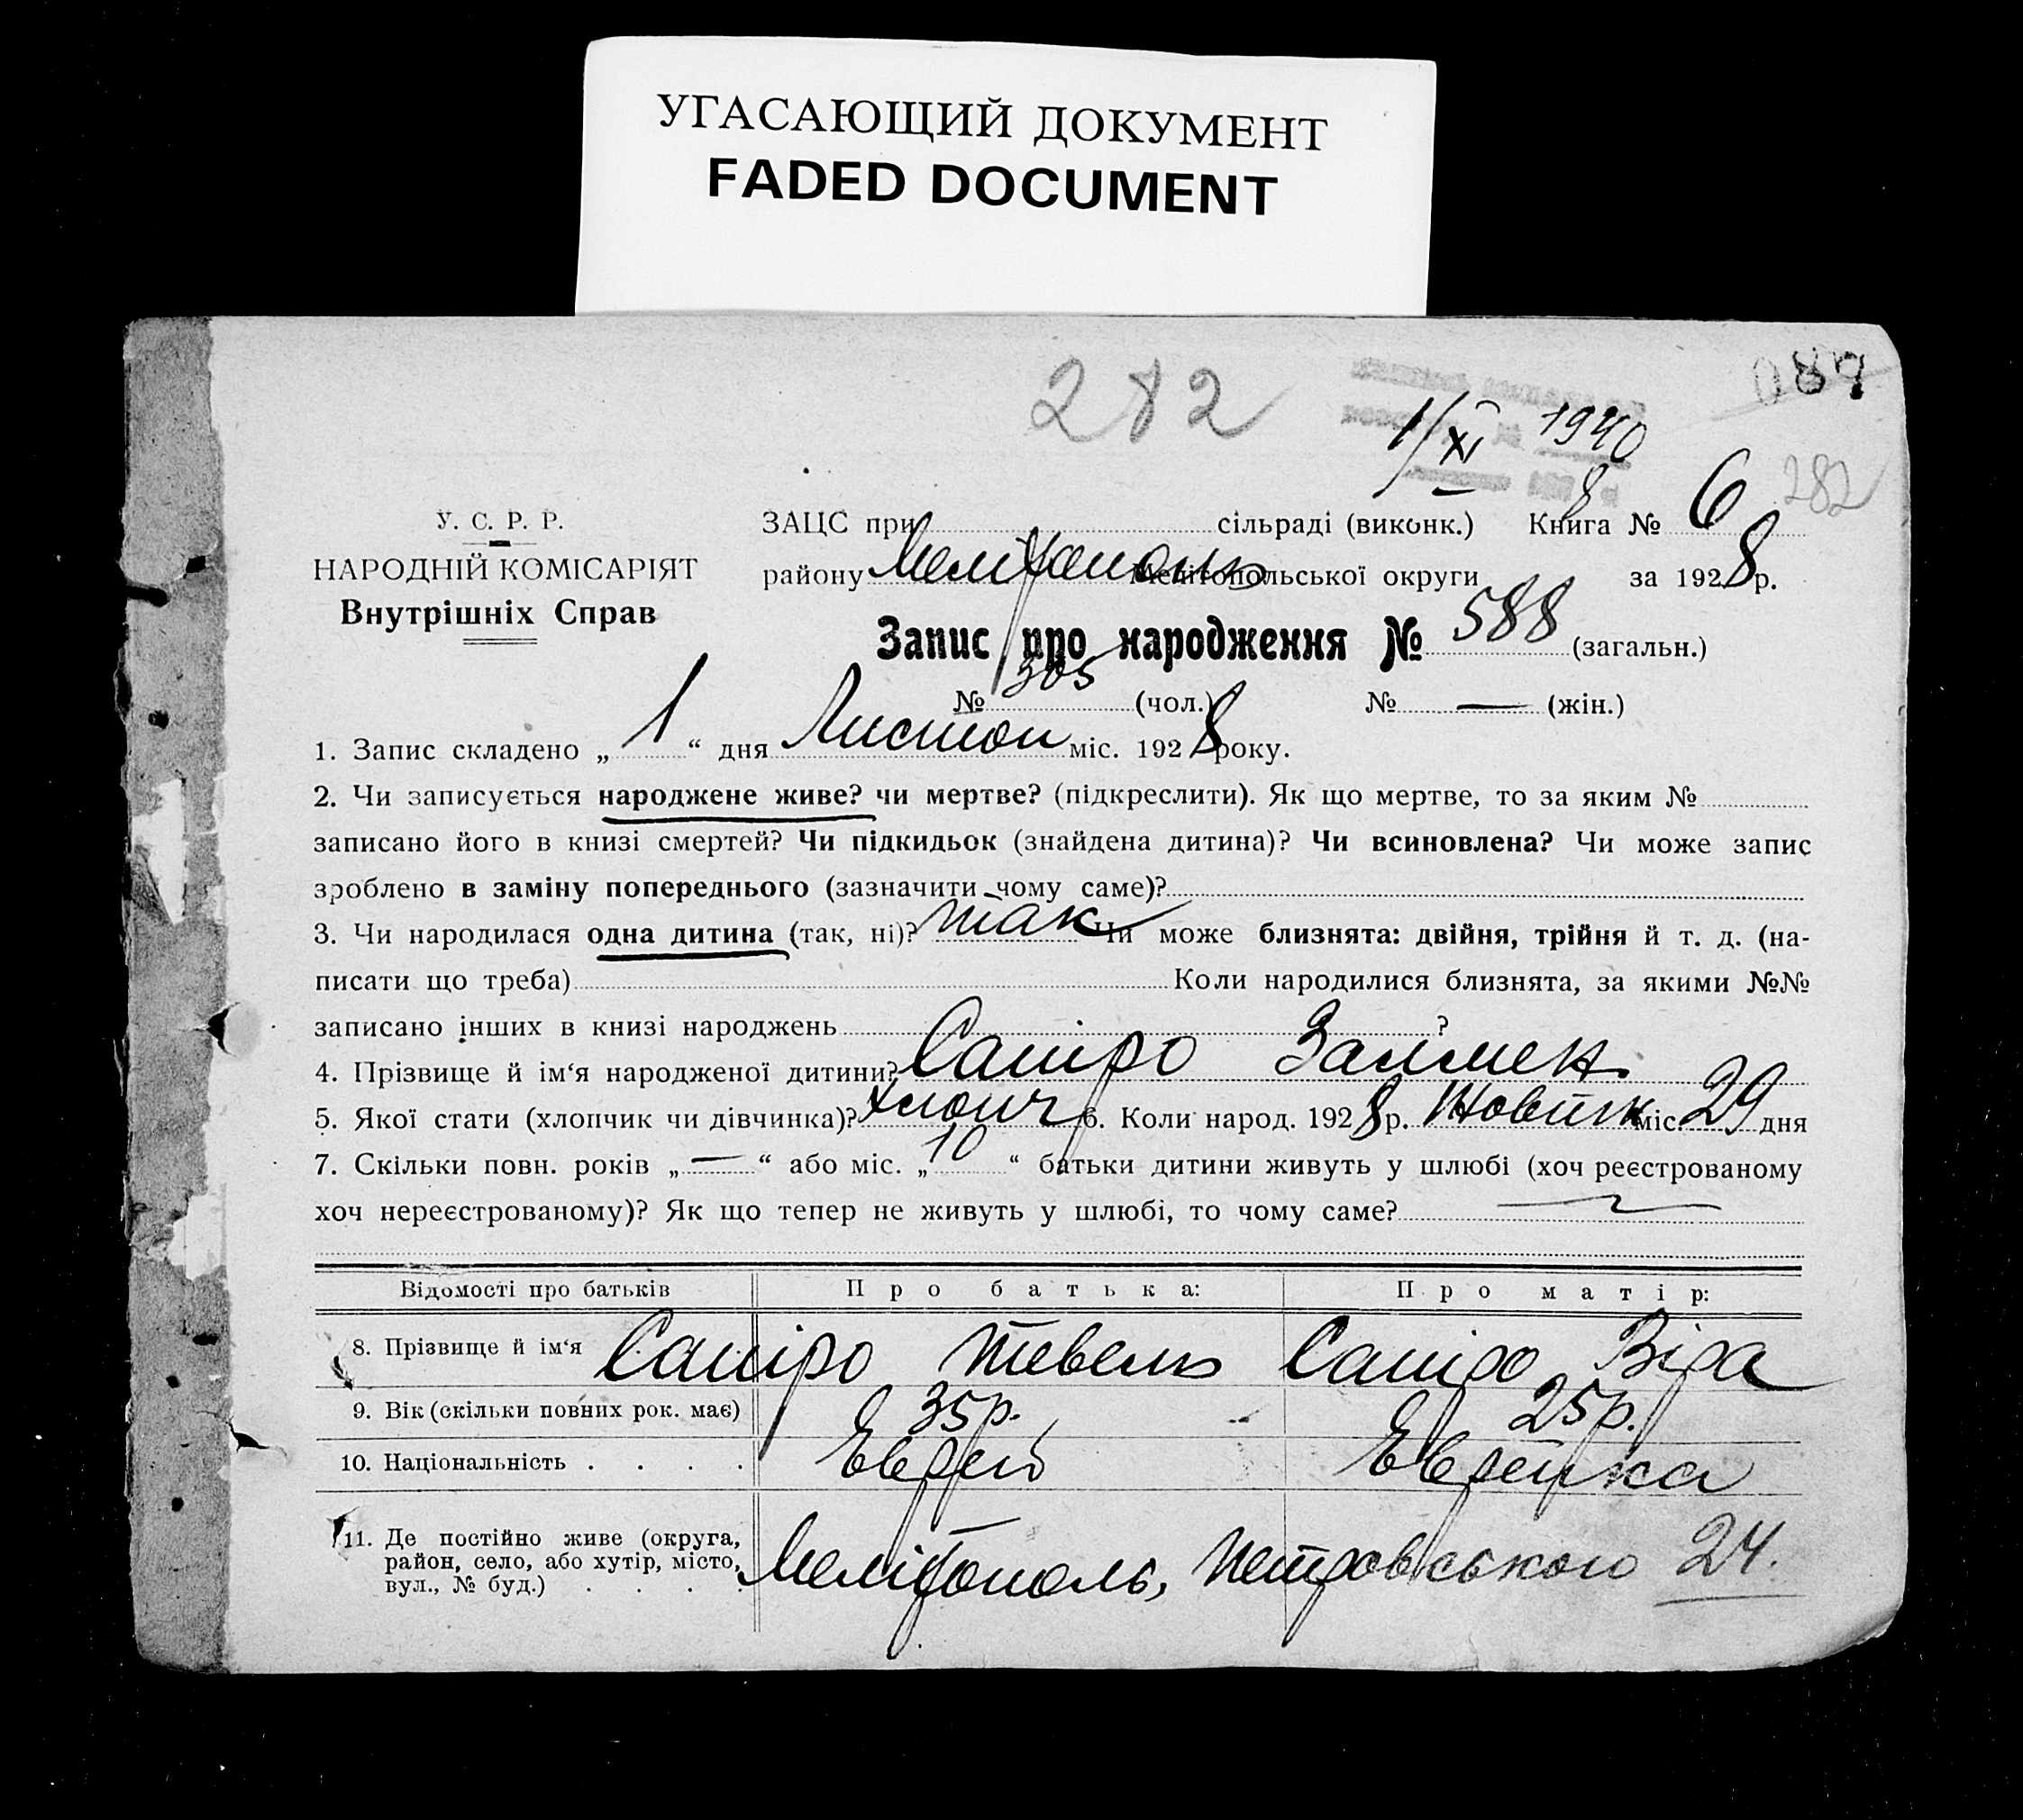 УГАСАЮЩИЙ ДОКУМЕНТ
FADED DOCUMENT
282
087
1/XI 1940
282
У. С. Р. Р.
НАРОДНІЙ КОМІСАРІЯТ
Внутрішніх Справ
ЗАЦС при сільраді (виконк.) Книга № 6
району Мелітополь Мелітопольської округи за 1928 р.
Запис про народження № 588 (загальн.)
№ 305 (чол.) № — (жін.)
1. Запис складено „ 1 “ дня Листоп міс. 1928 року.
2. Чи записується народжене живе? чи мертве? (підкреслити). Як що мертве, то за яким №
записано його в книзі смертей? Чи підкидьок (знайдена дитина)? Чи всиновлена? Чи може запис
зроблено в заміну попереднього (зазначити чому саме)?
3. Чи народилася одна дитина (так, ні)? так Чи може близнята: двійня, трійня й т. д. (на-
писати що треба) Коли народилися близнята, за якими №№
записано інших в книзі народжень ?
4. Прізвище й ім‘я народженої дитини? Сапіро Залмен
5. Якої стати (хлопчик чи дівчинка)? хлопч 6. Коли народ. 1928 р. Жовтн міс. 29 дня
7. Скільки повн. років „ — “ або міс. „ 10 “ батьки дитини живуть у шлюбі (хоч реєстрованому
хоч нереєстрованому)? Як що тепер не живуть у шлюбі, то чому саме?
Відомості про батьків Про батька: Про матір:
8. Прізвище й ім‘я Сапіро Тевель Сапіро Віра
9. Вік (скільки повних рок. має) 35 р. 25 р.
10. Національність . . . . Еврей Еврейка
11. Де постійно живе (округа,
район, село, або хутір, місто,
вул., № буд.) . . . . Мелітополь, Петровського 24.